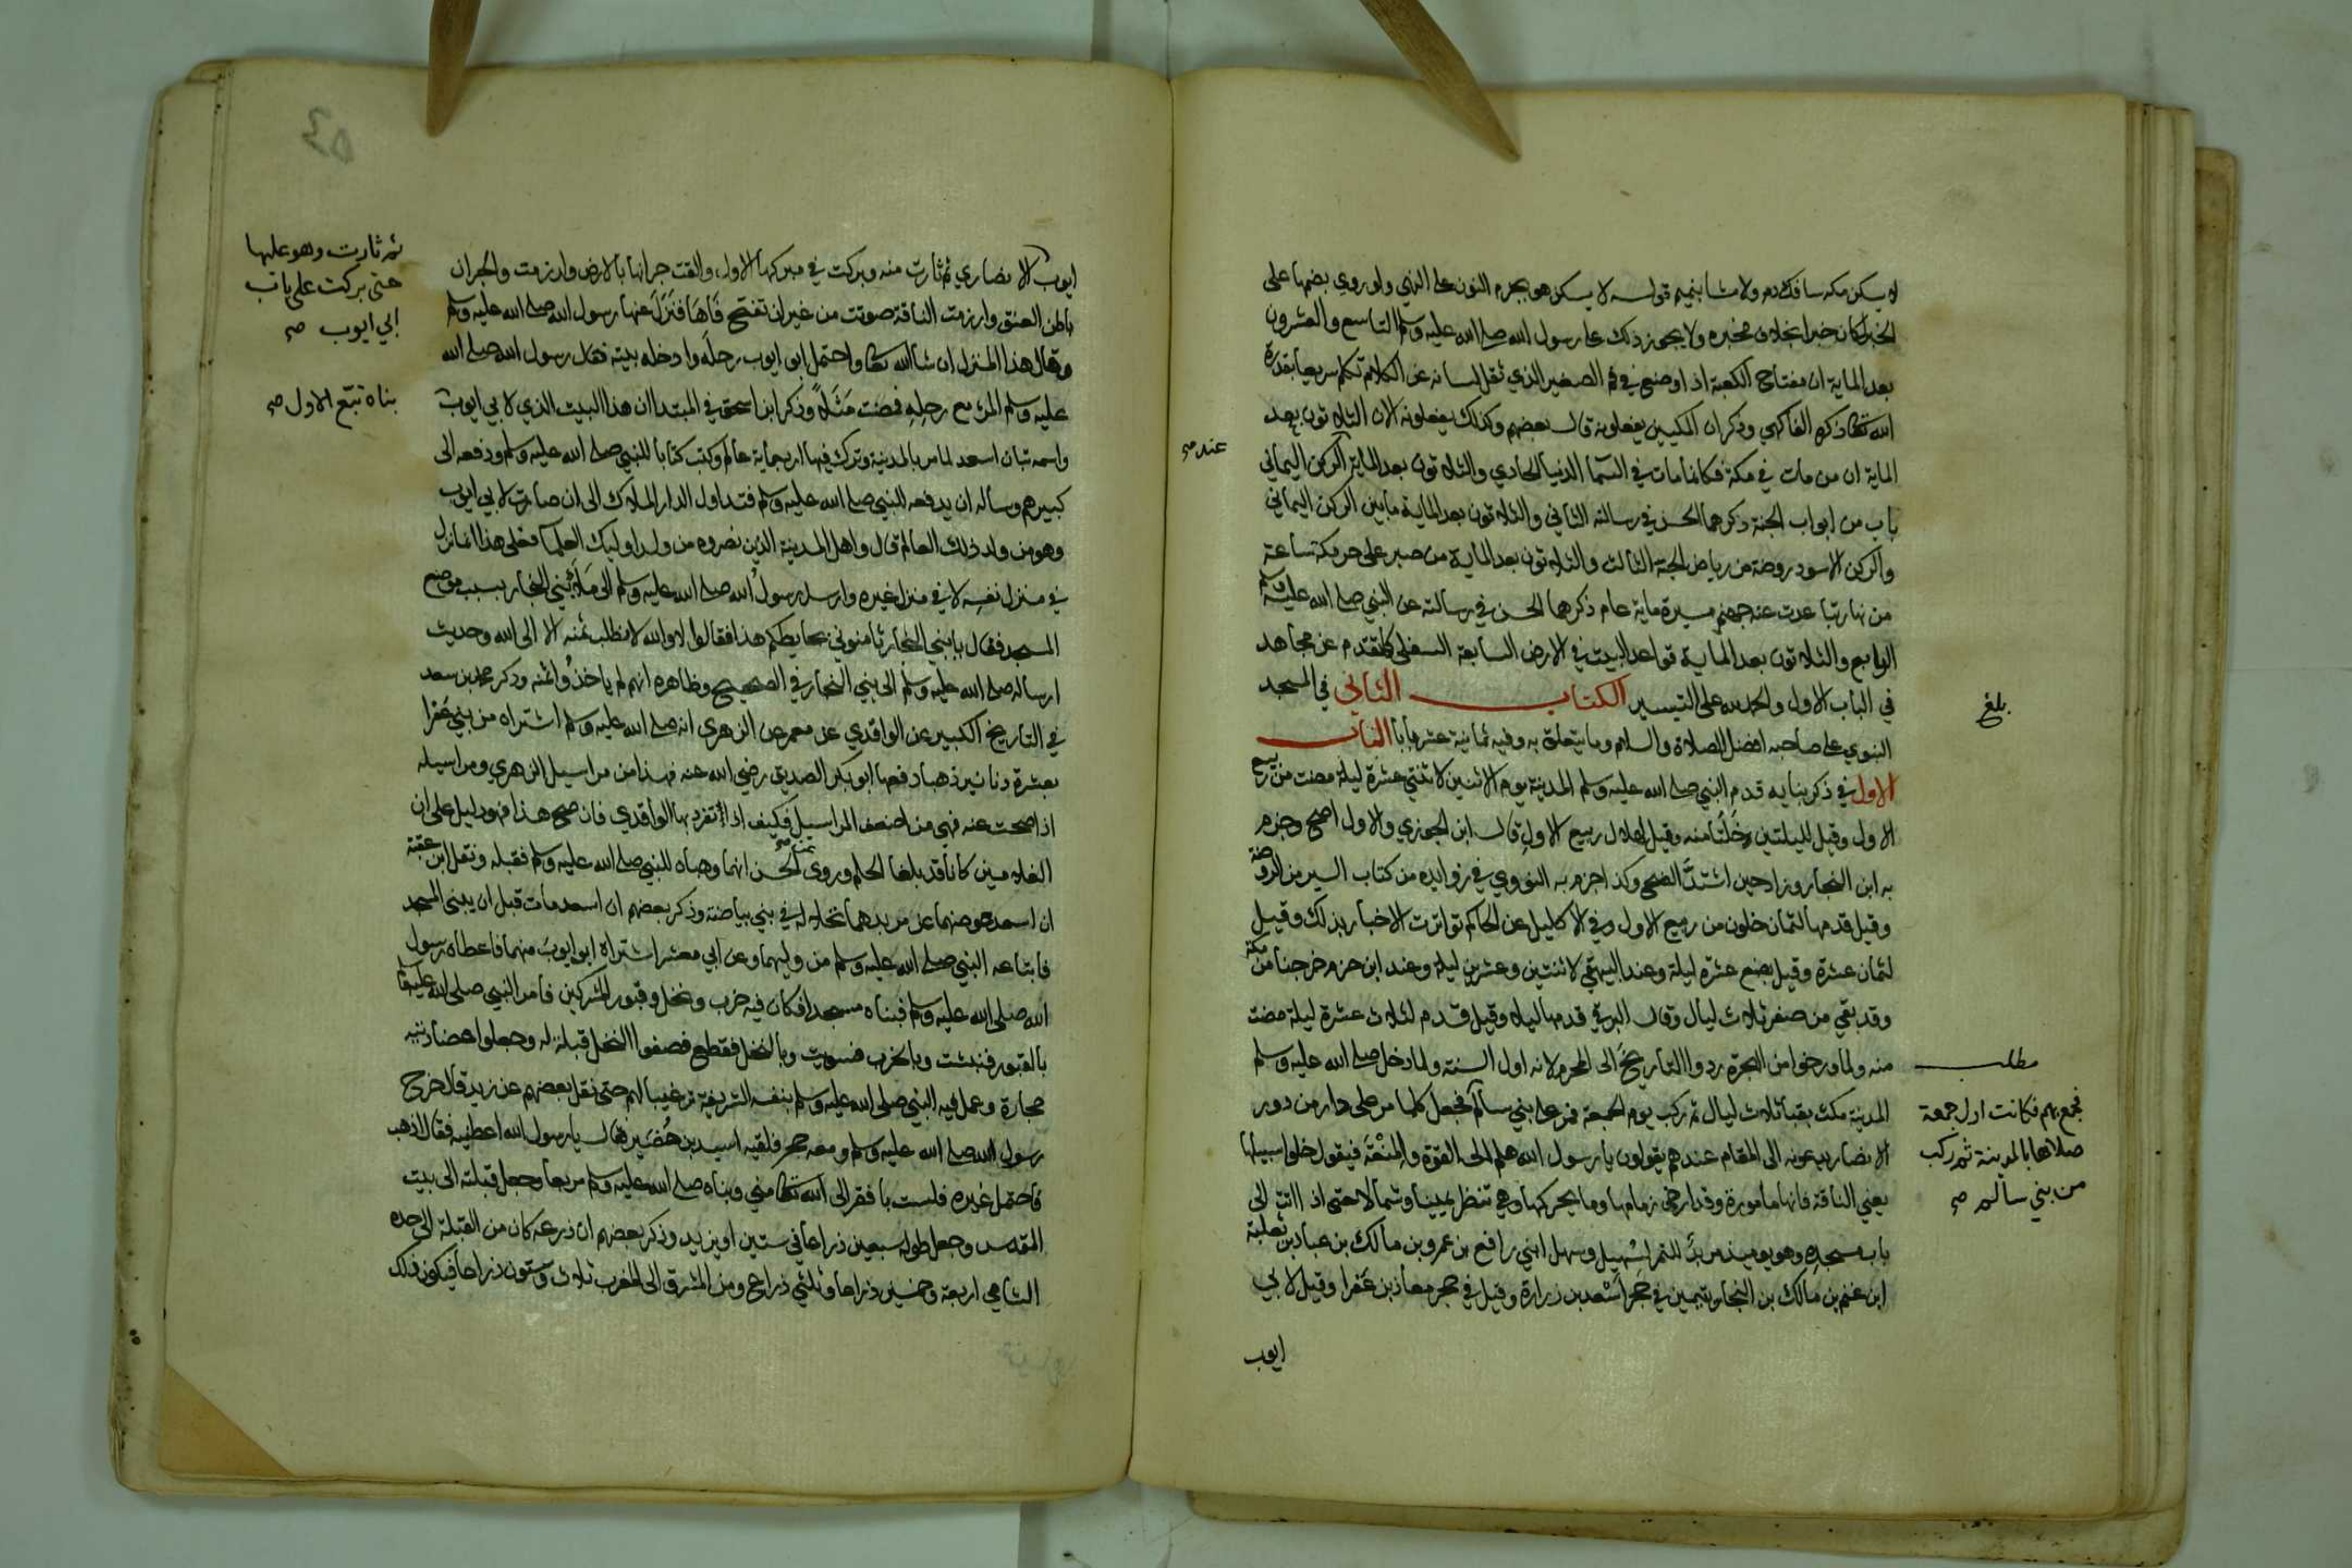 لا يسكن مكة سافك دم ولا مشا بنميم قوله لا يسكن هو بجزم النون على النهي ولو روي بضمها على
الخبر لكان خبرا بخلاف مخبره ولا يجوز ذلك على رسول الله صلى الله عليه وسلم التاسع والعشرون
بعد الماية ان مفتاح الكعبة اذا وضع في فم الصغير الذي ثقل لسانه عن الكلام تكلم سريعا بقدرة
الله تعالى ذكره الفاكهي وذكر ان المكيين يفعلونه قال بعضهم وكذلك يفعلونه الان الثلاثون بعد
الماية ان من مات في مكة فكانما مات في السما الدنيا الحادي والثلاثون بعد الماية الركن اليماني
عند صح
باب من ابواب الجنة ذكرهما الحسن في رسالته الثاني والثلاثون بعد الماية ما بين الركن اليماني
والركن الاسود روضة من رياض الجنة الثالث والثلاثون بعد الماية من صبر على حر مكة ساعة
من نهار تباعدت عنه جهنم مسيرة ماية عام ذكرهما الحسن في رسالته عن النبي صلى الله عليه وسلم
الرابع والثلاثون بعد الماية قواعد البيت في الارض السابعة السفلى كما تقدم عن مجاهد
في الباب الاول والحمد لله على التيسير الكتاب الثاني في المسجد
بلغ
النبوي على صاحبه افضل الصلاة والسلام وما يتعلق به وفيه ثمانية عشر بابا الباب
الاول في ذكر بنايه قدم النبي صلى الله عليه وسلم المدينة يوم الاثنين لاثنتي عشرة ليلة مضت من ربيع
الاول وقيل لليلتين خلتا منه وقيل لهلال ربيع الاول قال ابن الجوزي والاول اصح وجزم
به ابن النجار وزاد حين اشتد الضحى وكذا جزم به النووي في زوايده من كتاب السير من الروضة
وقيل قدمها لثمان خلون من ربيع الاول وفي الاكليل عن الحاكم تواترت الاخبار بذلك وقيل
لثمان عشرة وقيل بضع عشرة ليلة وعند البيهقي لاثنتين وعشرين ليلة وعند ابن حزم خرجنا من مكة
وقد بقي من صفر ثلاث ليال وقال البرقي قدمها ليلا وقيل قدم لثلاث عشرة ليلة مضت
منه ولما ورخوا من الهجرة ردوا التاريخ الى المحرم لانه اول السنة ولما دخل صلى الله عليه وسلم
المدينة مكث بقبا ثلاث ليال ثم ركب يوم الجمعة فمر على بني سالم فجعل كلما مر على دار من دور
الانصار يدعونه الى المقام عندهم يقولون يا رسول الله هلم الى القوة والمنعة فيقول خلوا سبيلها
يعني الناقة فانها مامورة وقد ارخى زمامها وما يحركها وهي تنظر يمينا وشمالا حتى اذا اتت الى
باب مسجده وهو يوميذ مربد للتمر لسهيل وسهل ابني رافع بن عمرو بن مالك بن عباد بن ثعلبة
ابن غنم بن مالك بن النجار يتيمين في حجر اسعد بن زرارة وقيل في حجر معاذ بن عفرا وقيل لابي
ايوب
مطلب
فجمع بهم فكانت اول جمعة
صلاها بالمدينة ثم ركب
من بني سالم صح
ايوب الانصاري ثم ثارت منه وبركت في مبركها الاول والقت جرانها بالارض وارزمت والجران
باطن العنق وارزمت الناقة صوتت من غير ان تفتح فاها فنزل عنها رسول الله صلى الله عليه وسلم
وقال هذا المنزل ان شا الله تعالى واحتمل ابو ايوب رحله وادخله بيته فقال رسول الله صلى الله
عليه وسلم المرء مع رحله فمضت مثلا وذكر ابن اسحق في المبتدا ان هذا البيت الذي لابي ايوب
واسمه تبان اسعد لما مر بالمدينة وترك فيها اربعماية عالم وكتب كتابا للنبي صلى الله عليه وسلم ودفعه الى
كبيرهم وساله ان يدفعه للنبي صلى الله عليه وسلم فتداول الدار الملاك الى ان صارت لابي ايوب
وهو من ولد ذلك العالم قال واهل المدينة الذين نصروه من ولد اوليك العلما فعلى هذا انما نزل
في منزل نفسه لا في منزل غيره وارسل رسول الله صلى الله عليه وسلم الى ملا بني النجار بسبب موضع
المسجد فقال يا بني النجار ثامنوني بحايطكم هذا فقالوا لا والله لا نطلب ثمنه الا الى الله وحديث
ارساله صلى الله عليه وسلم الى بني النجار في الصحيح وظاهره انهم لم ياخذوا ثمنه وذكر محمد بن سعد
في التاريخ الكبير عن الواقدي عن معمر عن الزهري انه صلى الله عليه وسلم اشتراه من بني عفرا
بعشرة دنانير ذهبا دفعها ابو بكر الصديق رضي الله عنه فهذا من مراسيل الزهري ومراسيله
اذا صحت عنه فهي من اضعف المراسيل فكيف اذا تفرد بها الواقدي فان صح هذا فهو دليل على ان
الغلامين كانا قد بلغا الحلم وروى عن الحسن انهما وهباه للنبي صلى الله عليه وسلم فقبله ونقل ابن عقبة
ان اسعد عوضهما عن مربدهما نخلا له في بني بياضة وذكر بعضهم ان اسعد مات قبل ان يبنى المسجد
فابتاعه النبي صلى الله عليه وسلم من وليهما وعن ابي معشر اشتراه ابو ايوب منهما فاعطاه رسول
الله صلى الله عليه وسلم فبناه مسجدا فكان فيه خرب ونخل وقبور المشركين فامر النبي صلى الله عليه وسلم
بالقبور فنبشت وبالخرب فسويت وبالنخل فقطع فصفوا النخل قبلة له وجعلوا عضادتيه
حجارة وعمل فيه النبي صلى الله عليه وسلم بنفسه الشريفة ترغيبا لهم حتى نقل بعضهم عن زيد قال خرج
رسول الله صلى الله عليه وسلم ومعه حجر فلقيه اسيد بن حضير فقال يا رسول الله اعطنيه فقال اذهب
فاحتمل غيره فلست بافقر الى الله تعالى مني وبناه صلى الله عليه وسلم مربعا وجعل قبلته الى بيت
المقدس وجعل طوله سبعين ذراعا في ستين او يزيد وذكر بعضهم ان ذرعه كان من القبلة الى حده
الشامي اربعة وخمسين ذراعا وثلثي ذراع ومن المشرق الى المغرب ثلاث وستون ذراعا فيكون ذلك
ثم ثارت وهو عليها
حتى بركت على باب
ابي ايوب صح
بناه تبع الاول صح